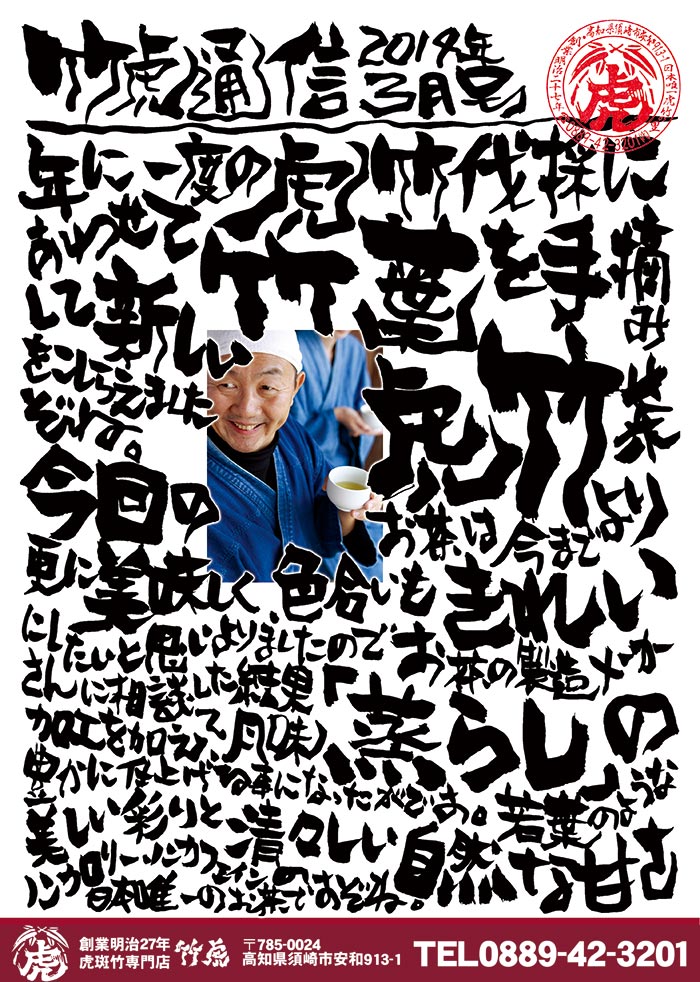 竹虎通信 2019年3月号
年に一度の虎竹伐採に
あわせて竹葉を手摘み
して新しい虎竹茶
をこしらえました
ぞね。
今回のお茶は今までより
更に美味しく色合いもきれい
にしたいと思いよりましたのでお茶の製造メーカ
さんに相談した結果「蒸らし」の
加工を加えて、風味
豊かに仕上げる事になったがです。若葉のような
美しい彩りと清々しい自然な甘さ
ノンカロリー・ノンカフェインの
日本唯一のお茶ぞね。
虎
虎
創業明治27年
虎斑竹専門店
竹虎
〒785-0024
高知県須崎市安和913-1
TEL0889-42-3201